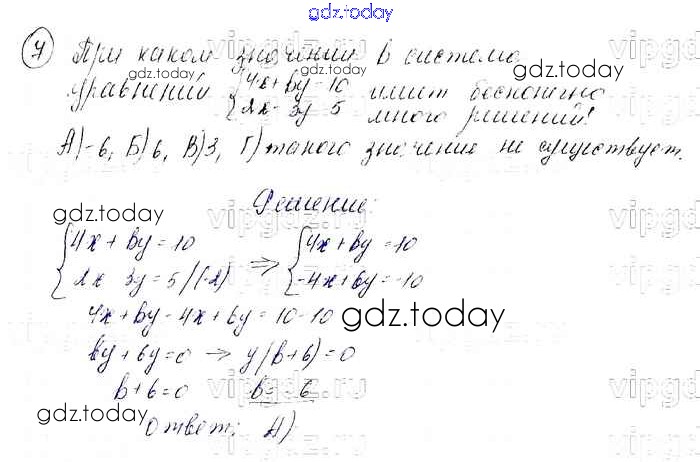 gdz.today
7 При каком значении b система
уравнений {4x + by = 10 имеет бесконечно
{2x - 3y = 5 много решений?
А) -6, Б) 6, В) 3, Г) такого значение не существует.
Решение:
{4x + by = 10 ⇒ {4x + by = 10
{2x 3y = 5 /(-2) {-4x + 6y = -10
4x + by - 4x + 6y = 10 - 10
by + 6y = 0 → y(b + 6) = 0
b + 6 = 0 b = -6
Ответ: А)
gdz.today
gdz.today
gdz.today
gdz.today
gdz.today
gdz.today
gdz.today